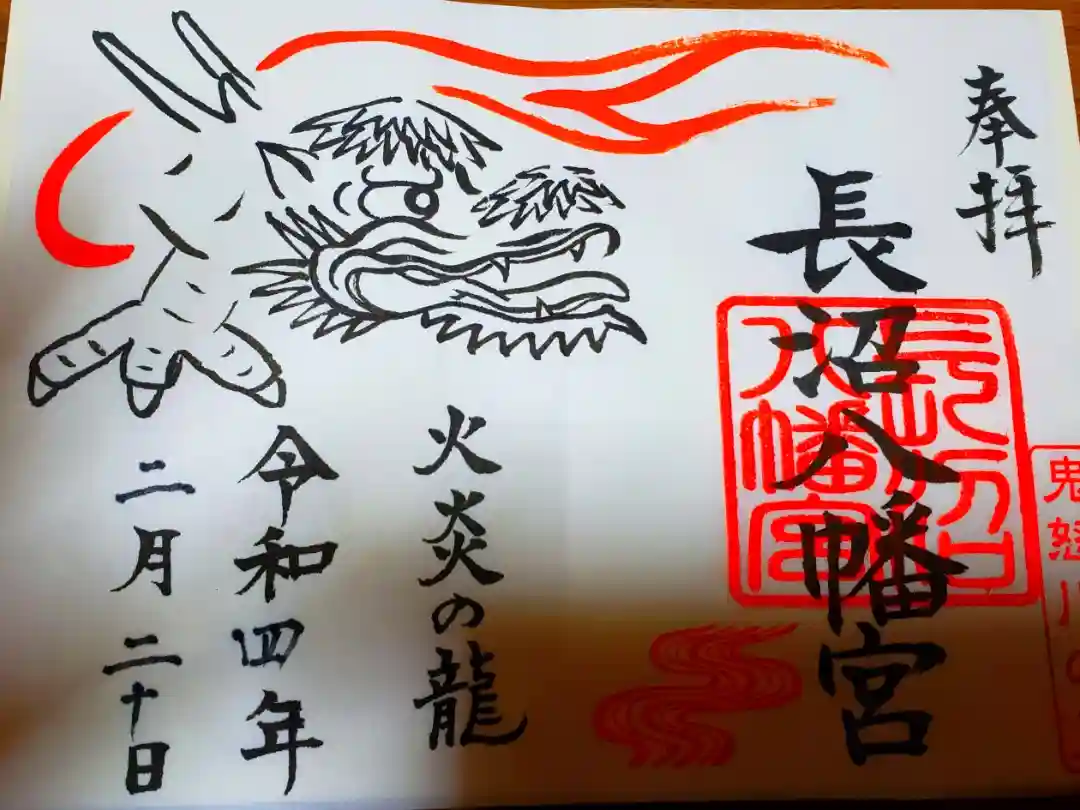 奉拝
長沼八幡宮
長沼八幡宮
鬼怒川の
火炎の龍
令和四年
二月二十日